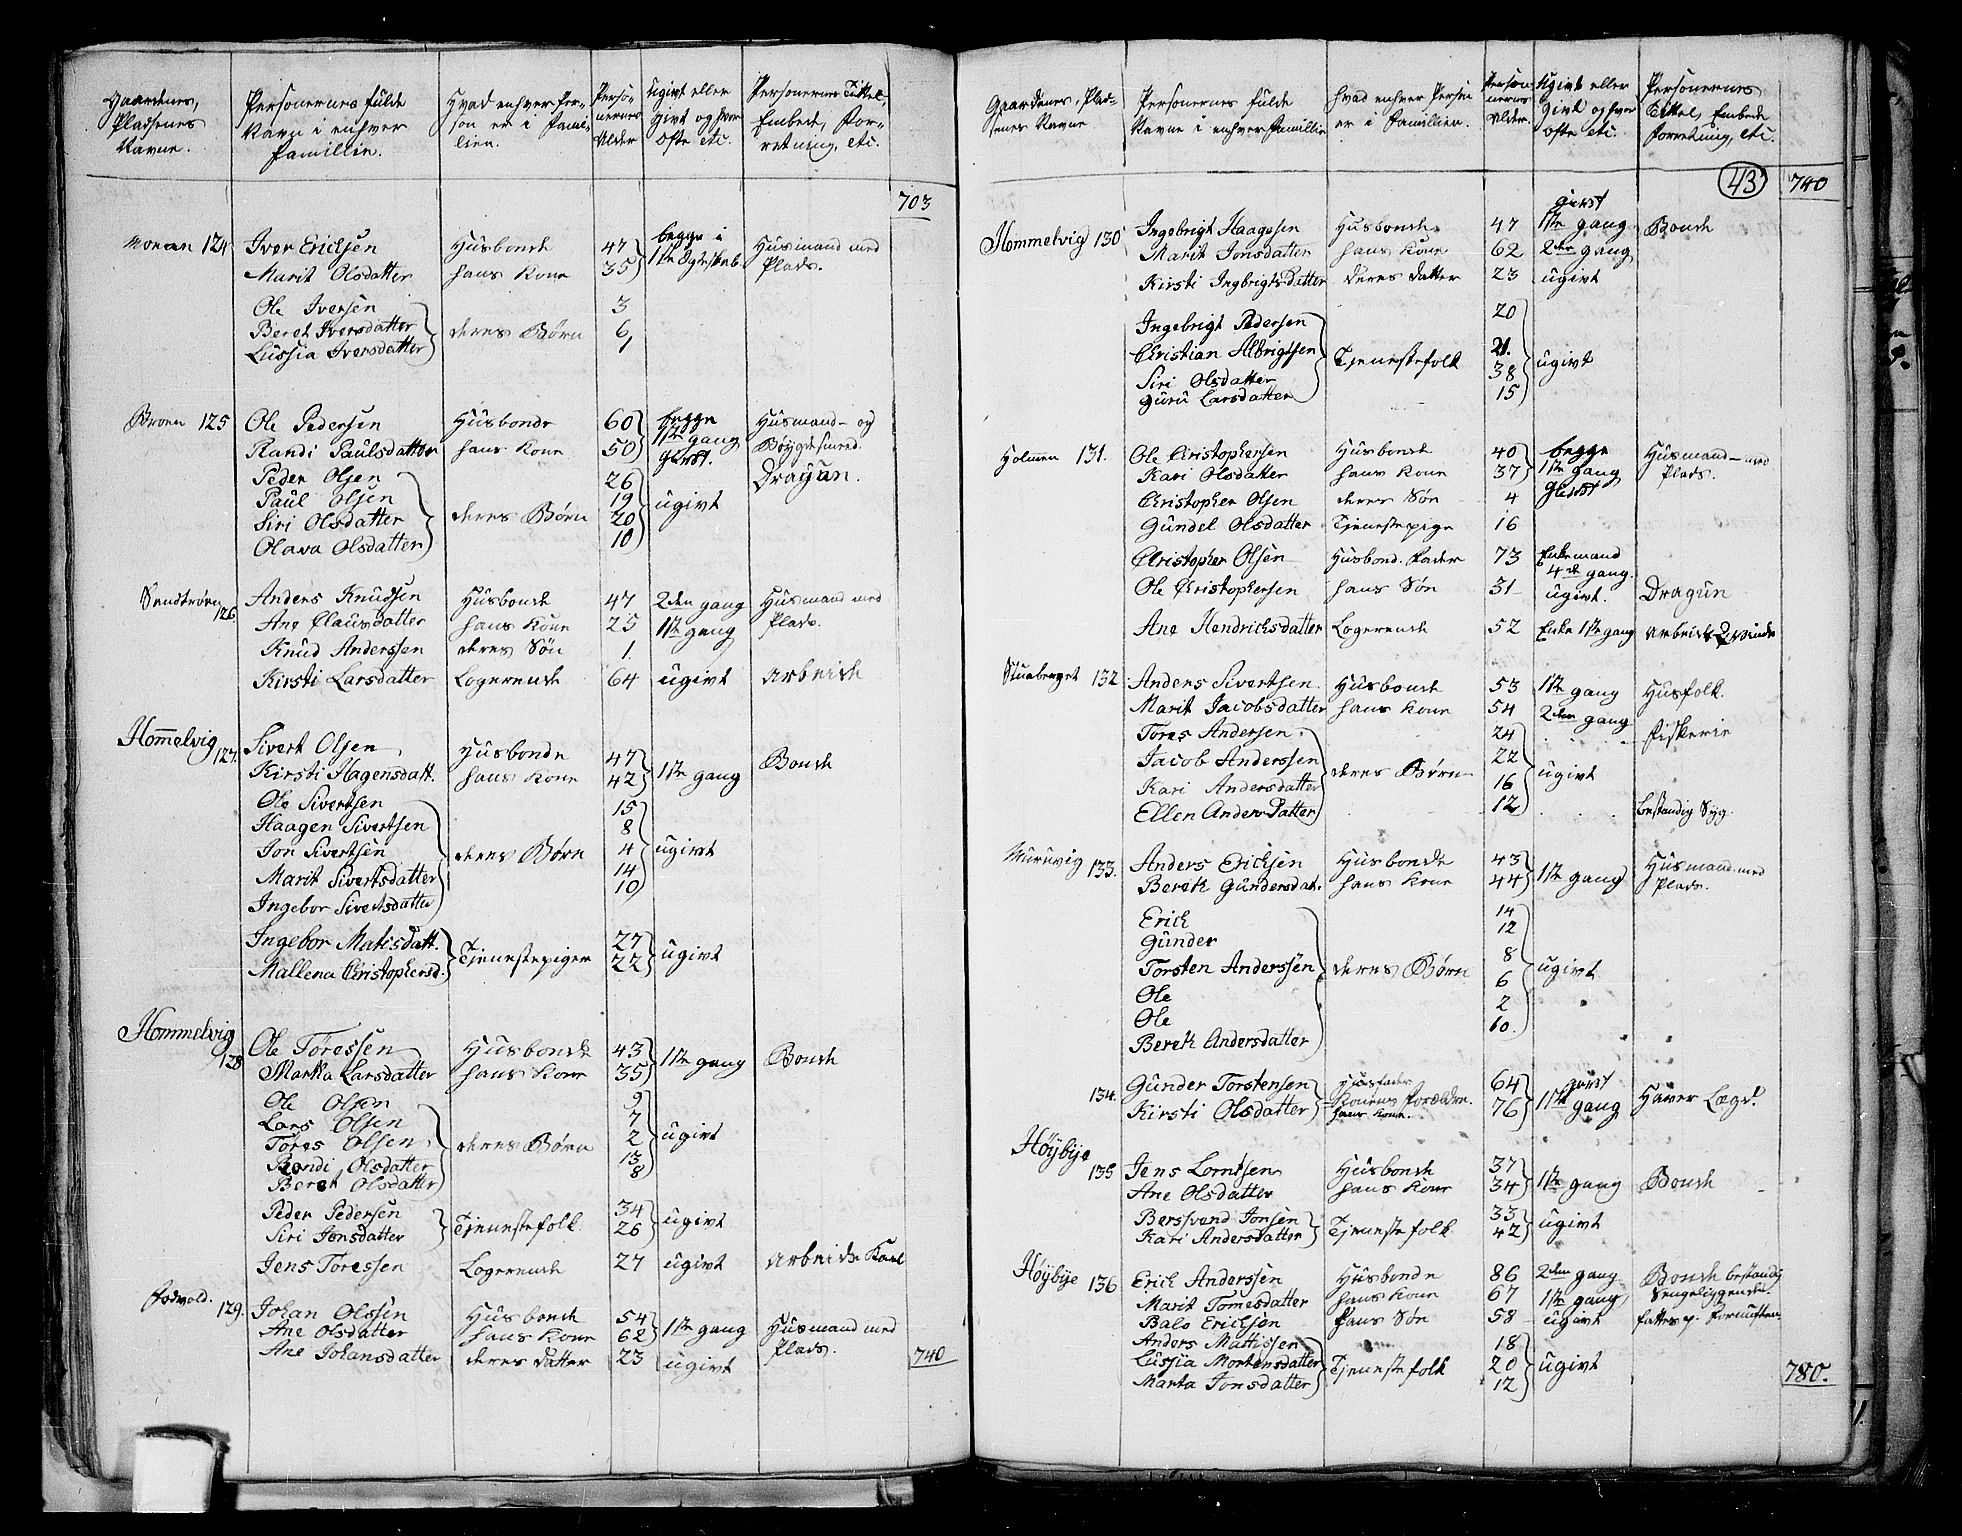 Gaardenes, Pladsenes Navne. | Personernes fulde Navne i enhver Familie. | Hvad enhver Person er i Familien. | Personernes Alder | Ugivt eller Givt og hvor ofte etc. | Personernes Tittel, Embede, Forretning, etc.
703
124 Iver Erichsen Husbonde 47 begge i 1ste Egteskab. Husmand med Plads.
Marit Olsdatter hans Kone 35
Ole Iversen 3
Beret Iversdatter deres Børn 6
Lussia Iversdatter 1
125 Ole Pedersen Husbonde 60 begge 1ste gang givt. Husmand og Bøygdesmed.
Randi Paulsdatter hans Kone 50
Peder Olsen 26 Dragun.
Paul Olsen 19 ugivt
Siri Olsdatter deres Børn 20
Olava Olsdatter 10
126 Anders Knudsen Husbonde 47 2den gang Husmand med Plads.
Ane Clausdatter hans Kone 25 1ste gang
Knud Anderssen deres Søn 1.
Kirsti Larsdatter Logerende 64 ugivt Arbeide
Hommelvig 127. Sivert Olsen Husbonde 47 1ste gang Bonde
Kirsti Hagensdatt. hans Kone 42
Ole Sivertsen 15
Haagen Sivertsen 8
Jon Sivertsen deres Børn 4 ugivt
Marit Sivertsdatter 14
Ingebor Sivertsdatter 10
Ingebor Matisdatt. Tjenestepiger 27 ugivt
Mallena Christophersd. 22
Hommelvig 128 Ole Toressen Husbonde 43 1ste gang Bonde
Marta Larsdatter hans Kone 35
Ole Olsen 9
Lars Olsen 7
Tores Olsen deres Børn 2 ugivt
Randi Olsdatter 13
Beret Olsdatter 8
Peder Pedersen Tjenestefolk 34 ugivt
Siri Jonsdatter 26
Jens Toressen Logerende 27 ugivt Arbeids Karl
129. Johan Olssen Husbonde 54 1ste gang Husmand med Plads.
Ane Olsdatter hans Kone 62
Ane Johansdatter deres Datter 23 ugivt
740
Gaardenes, Pladsenes Navne | Personernes fulde Navne i enhver Familie | hvad enhver Person er i Familien. | Personernes Alder. | Ugivt eller givt og hvor ofte etc. | Personernes Tittel, Embede forretning, etc.
43 740
Hommelvig 130 Ingebrigt Haagesen Husbonde 47 givt 1ste gang Bonde
Marit Jonsdatter hans Kone 62 2den gang
Kirsti Ingbrigtsdatter deres datter 23 ugivt
Ingebrigt Pedersen 20
Christian Albrigtsen Tjenestefolk 21. ugivt
Siri Olsdatter 38
Guru Larsdatter 15
Holmen 131. Ole Christophersen Husbonde 40 begge 1ste gang givt Husmand med Plads.
Kari Olsdatter hans Kone 37
Christopher Olsen deres Søn 4
Gundel Olsdatter Tjenestepige 16
Christopher Olsen Husbond. Fader 73 Enkemand 4de gang.
Ole Christophersen hans Søn 31 ugivt. Dragun
Ane Hendrichsdatter Logerende 52 Enke 1ste gang Arbeids Qvinde
132 Anders Sivertsen Husbonde 53 1ste gang Husfolk.
Marit Jacobsdatter hans Kone 54 2den gang
Tores Andersen 24 fiskerie
Jacob Anderssen deres Børn 22 ugivt
Kari Andersdatter 16
Ellen Anders Datter 12 bestandig Syg
Muruvig 133. Anders Erichsen Husbonde 43 1ste gang Husmand med Plads.
Bereth Gundersdat. hans Kone 44
Erich 14
Gunder 12
Torsten Anderssen deres Børn 8 ugivt
Ole 6
Ole 2
Bereth Andersdatter 10.
134. Gunder Torstensen Husfader Konens Forældre. 64 givt 1ste gang Haver Lægd.
Kirsti Olsdatter hans Kone. 76
Høybye 135 Jens Lorntsen Husbonde 37 1ste gang Bonde
Ane Olsdatter hans Kone 34
Bersvend Jonsen Tjenestefolk 33 ugivt
Kari Andersdatter 42
Høybye 136 Erich Anderssen Husbonde 86 2den gang Bonde bestandig Sengeliggende.
Marit Tomesdatter hans Kone 67 1ste gang
Erichsen hans Søn 58 ugivt
Anders Mattissen 18
Lussia Mortensdatter Tjenestefolk 20 ugivt
Marta Jonsdatter 12
780.